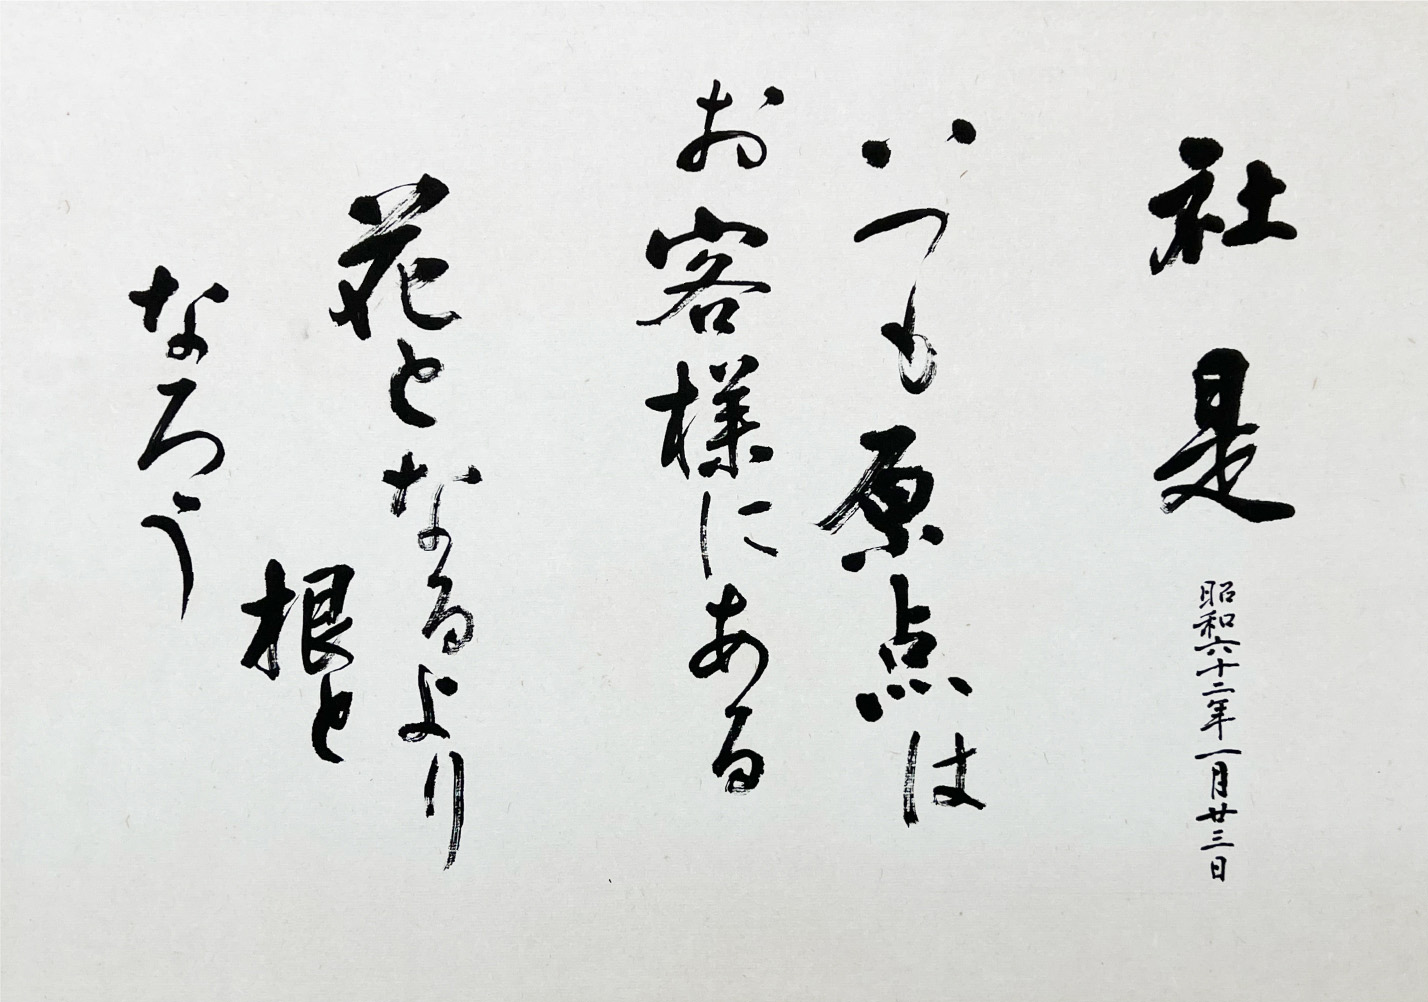 社是
昭和六十二年一月廿三日
いつも原点は
お客様にある
花となるより
根と
なろう